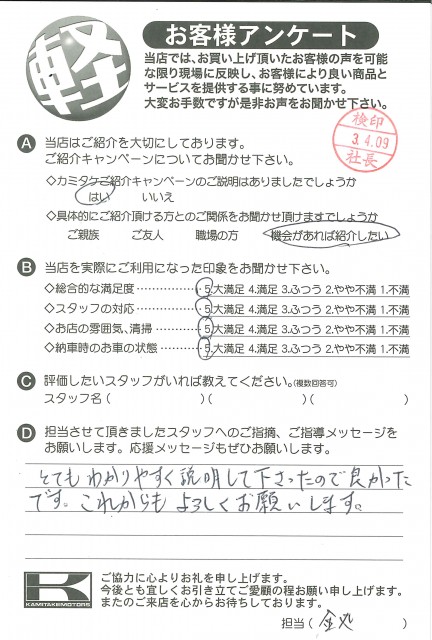 軽
お客様アンケート
当店では、お買い上げ頂いたお客様の声を可能
な限り現場に反映し、お客様により良い商品と
サービスを提供する事に努めています。
大変お手数ですが是非お声をお聞かせ下さい。
検印
3.4.09
社長
A 当店はご紹介を大切にしております。
ご紹介キャンペーンについてお聞かせ下さい。
◇カミタケご紹介キャンペーンのご説明はありましたでしょうか
はい いいえ
◇具体的にご紹介頂ける方とのご関係をお聞かせ頂けますでしょうか
ご親族 ご友人 職場の方 機会があれば紹介したい
B 当店を実際にご利用になった印象をお聞かせ下さい。
◇総合的な満足度……………5.大満足 4.満足 3.ふつう 2.やや不満 1.不満
◇スタッフの対応……………5.大満足 4.満足 3.ふつう 2.やや不満 1.不満
◇お店の雰囲気、清掃………5.大満足 4.満足 3.ふつう 2.やや不満 1.不満
◇納車時のお車の状態………5.大満足 4.満足 3.ふつう 2.やや不満 1.不満
C 評価したいスタッフがいれば教えてください。(複数回答可)
スタッフ名( )( )( )
D 担当させて頂きましたスタッフへのご指摘、ご指導メッセージを
お願いします。応援メッセージもぜひお願いします。
とてもわかりやすく説明して下さったので良かった
です。これからもよろしくお願いします。
K
KAMITAKEMOTORS
ご協力に心よりお礼を申し上げます。
今後とも宜しくお引き立てご愛顧の程お願い申し上げます。
またのご来店を心からお待ちしております。
担当( )